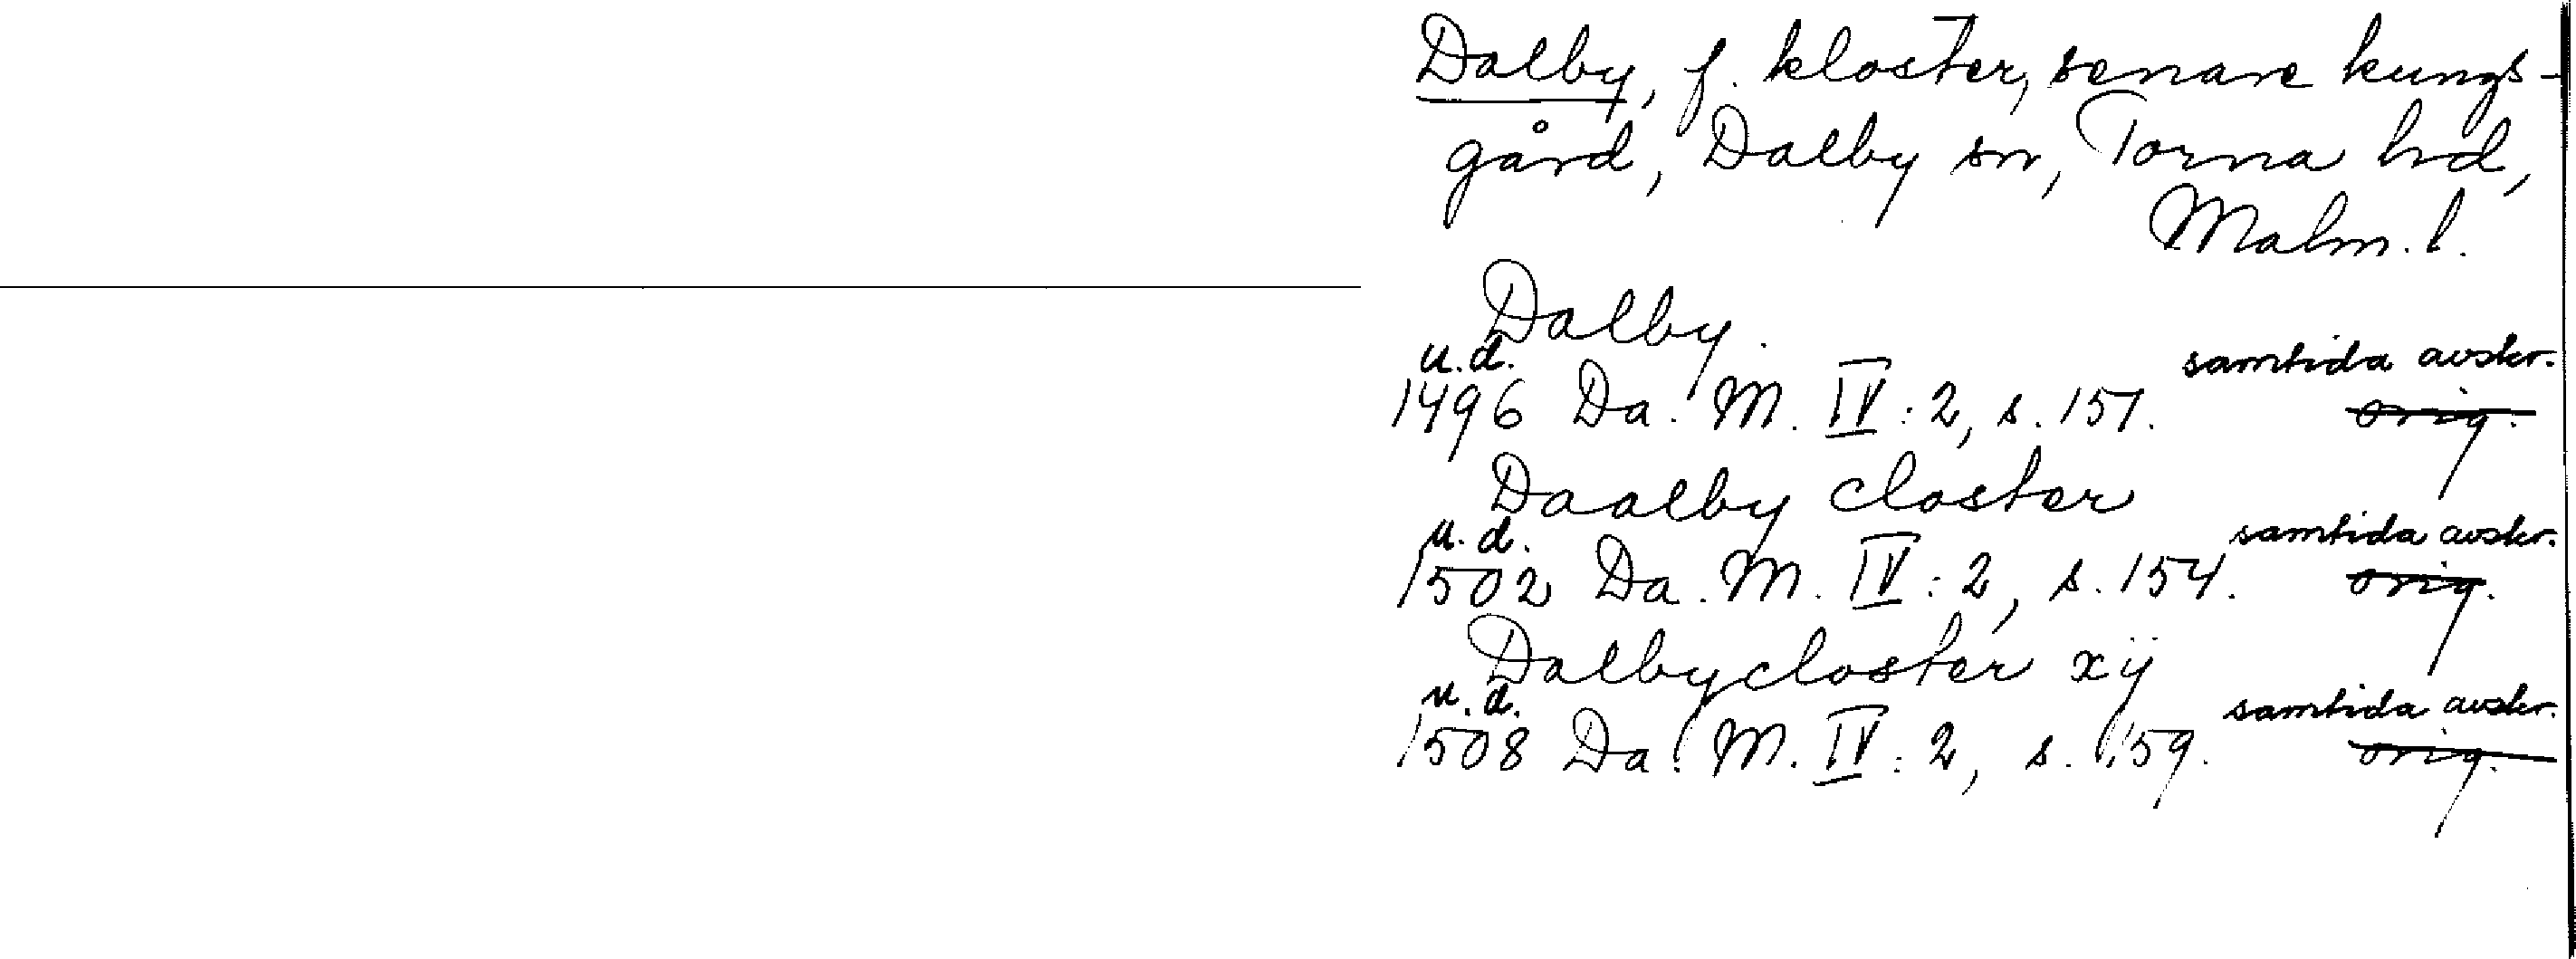 Dalby, f. kloster, senare kungs-
gård, Dalby sn, Torna hd,
Malm. l.
Dalby.
u.d. samtida avskr.
1496 Da. M. IV:2, s. 151. orig.
Daalby closter
u.d. samtida avskr.
1502 Da. M. IV:2, s. 154. orig.
Dalbycloster xij
u.d. samtida avskr.
1508 Da. M. IV:2, s. 159. orig.